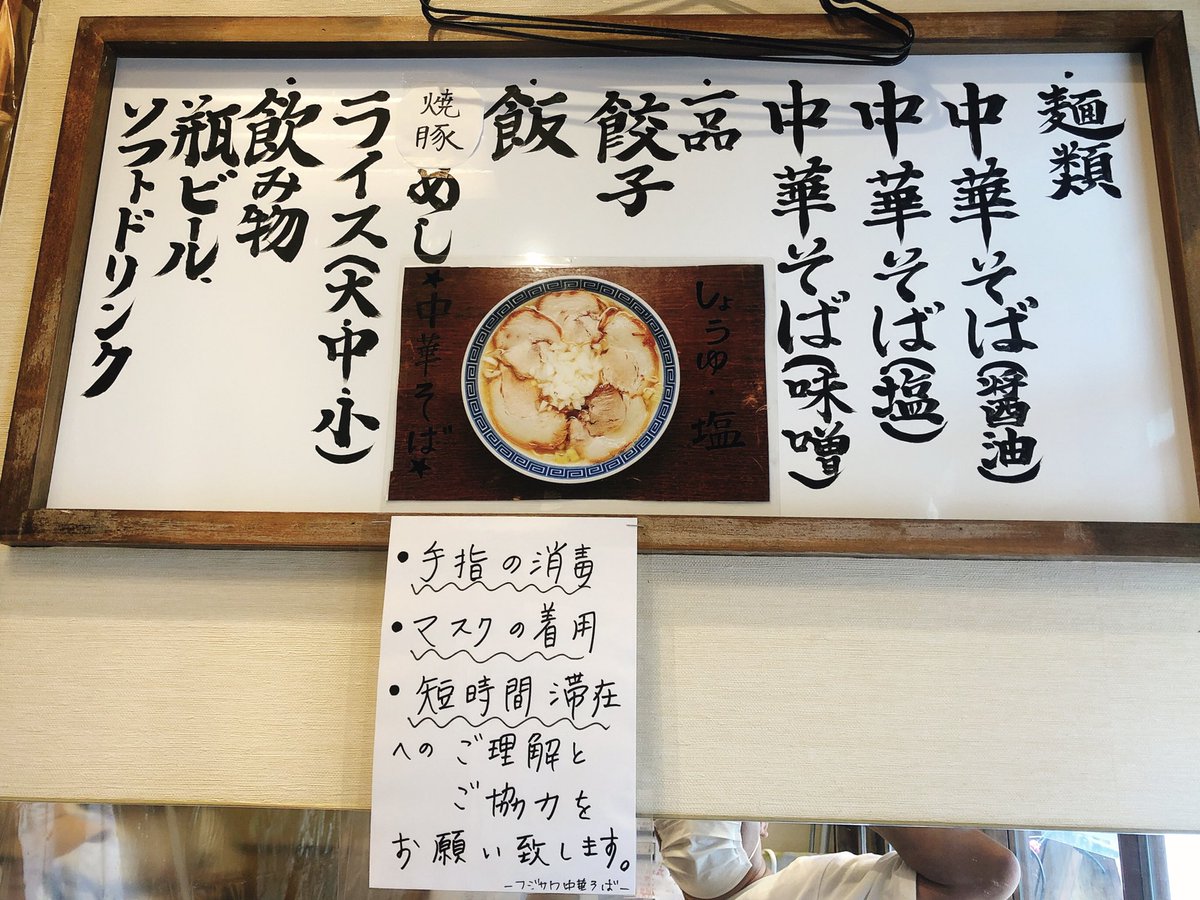 ・麺類
中華そば(醤油)
中華そば(塩)
中華そば(味噌)
・一品
餃子
・飯
焼豚めし
ライス(大中小)
・飲み物
瓶ビール、
ソフトドリンク
しょうゆ・塩
★中華そば★
・手指の消毒
・マスクの着用
・短時間滞在
へのご理解と
ご協力を
お願い致します。
ーフジサワ中華そばー